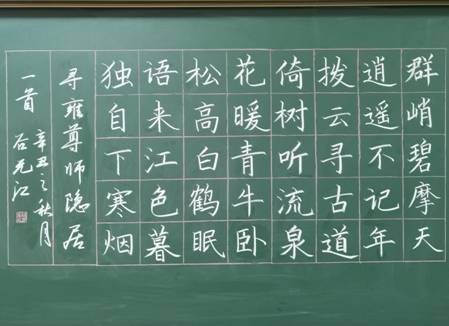 群峭碧摩天
逍遥不记年
拨云寻古道
倚树听流泉
花暖青牛卧
松高白鹤眠
语来江色暮
独自下寒烟
寻雍尊师隐居
一首
辛丑之秋月
石元江